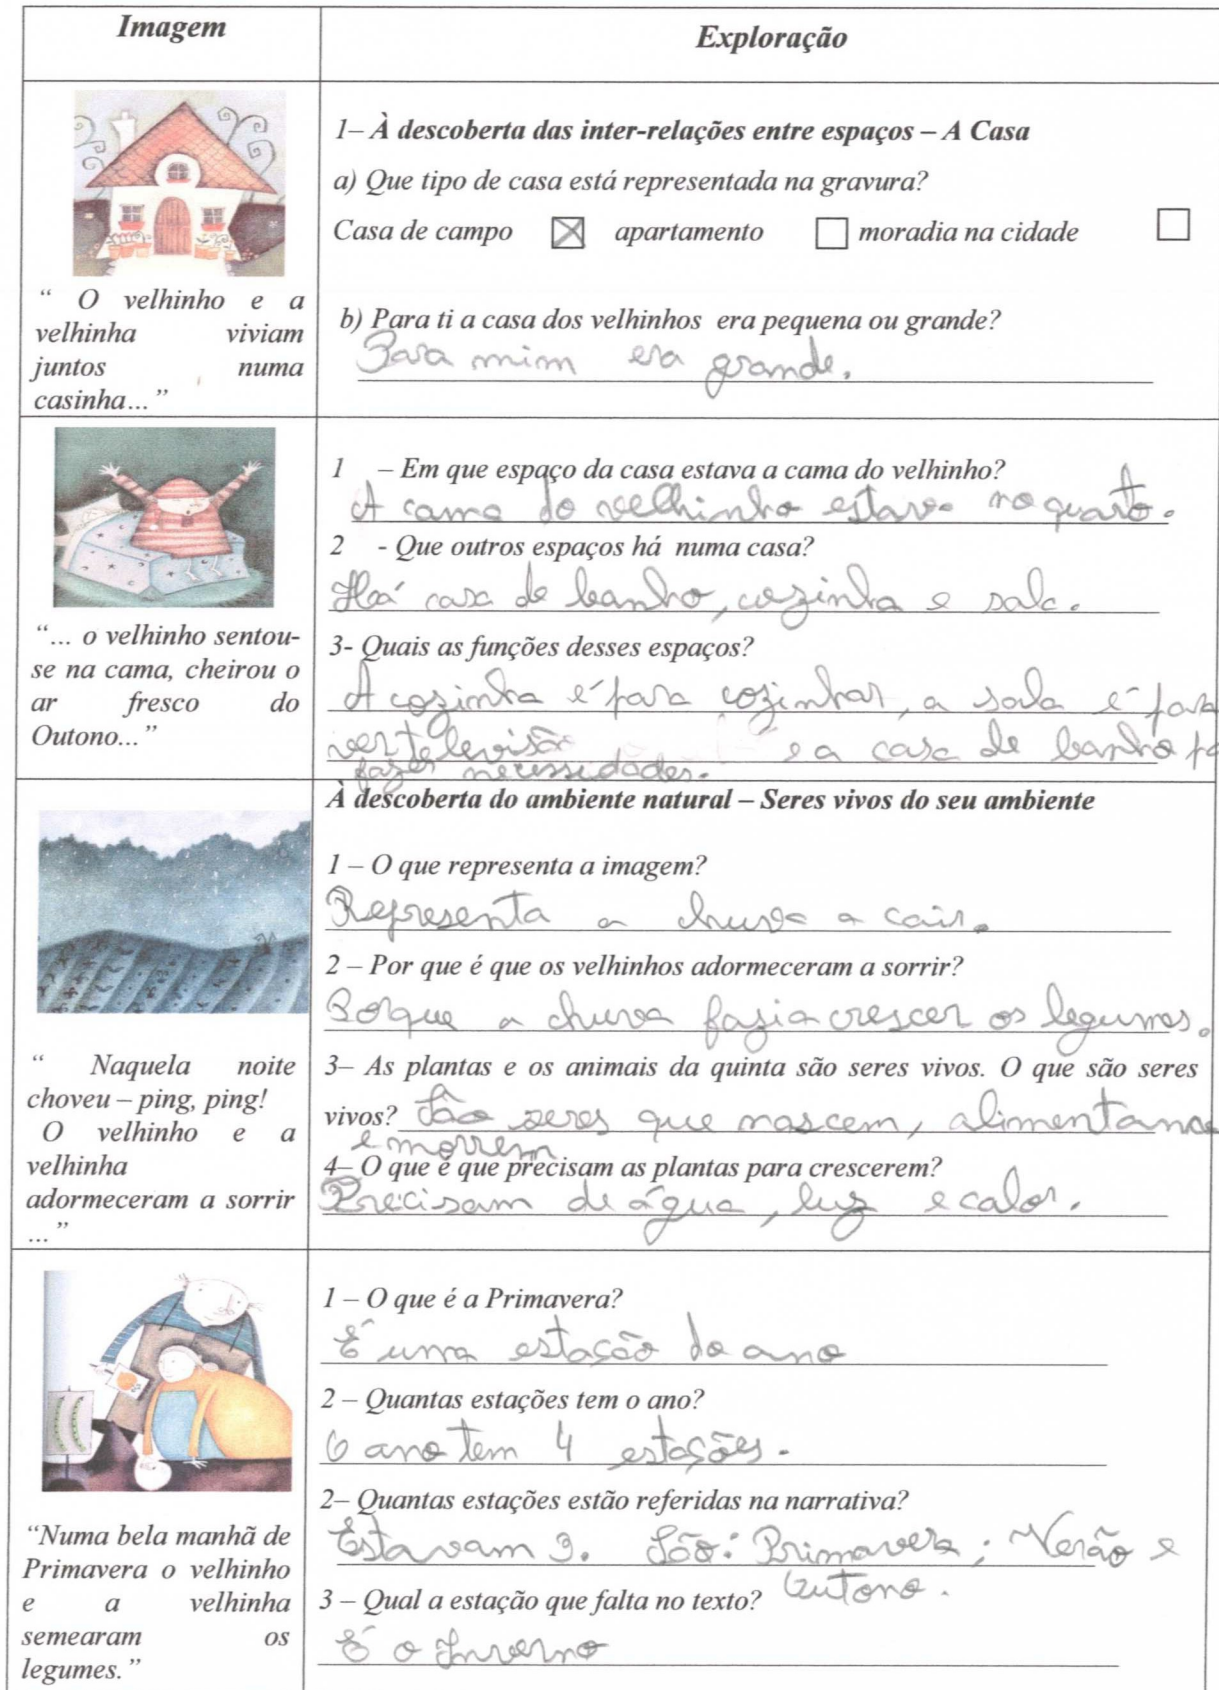 Imagem
Exploração
“ O velhinho e a
velhinha viviam
juntos numa
casinha...”
1– À descoberta das inter-relações entre espaços – A Casa
a) Que tipo de casa está representada na gravura?
Casa de campo ☒ apartamento ☐ moradia na cidade ☐
b) Para ti a casa dos velhinhos era pequena ou grande?
Para mim era grande.
“... o velhinho sentou-
se na cama, cheirou o
ar fresco do
Outono...”
1 – Em que espaço da casa estava a cama do velhinho?
A cama do velhinho estava no quarto.
2 - Que outros espaços há numa casa?
Há casa de banho, cozinha e sala.
3- Quais as funções desses espaços?
A cozinha é para cozinhar, a sala é para
ver televisão e a casa de banho pa
fazer necessidades.
“ Naquela noite
choveu – ping, ping!
O velhinho e a
velhinha
adormeceram a sorrir
...”
À descoberta do ambiente natural – Seres vivos do seu ambiente
1 – O que representa a imagem?
Representa a chuva a cair.
2 – Por que é que os velhinhos adormeceram a sorrir?
Porque a chuva fazia crescer os legumes.
3– As plantas e os animais da quinta são seres vivos. O que são seres
vivos? São seres que nascem, alimentam
e morrem
4– O que é que precisam as plantas para crescerem?
Precisam de água, luz e calor.
“Numa bela manhã de
Primavera o velhinho
e a velhinha
semearam os
legumes.”
1 – O que é a Primavera?
É uma estação do ano
2 – Quantas estações tem o ano?
O ano tem 4 estações.
2– Quantas estações estão referidas na narrativa?
Estavam 3. São: Primavera; Verão e
Outono.
3 – Qual a estação que falta no texto?
É o Inverno